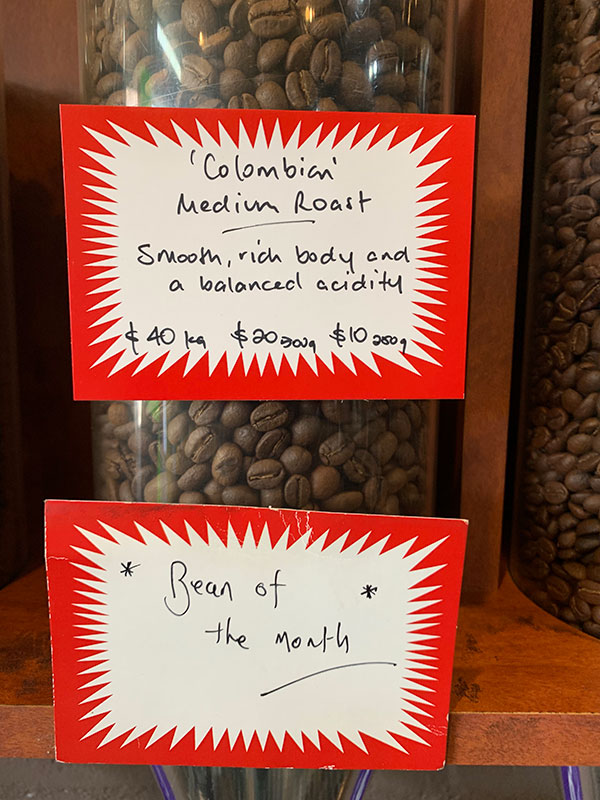 'Colombian'
Medium Roast
Smooth, rich body and
a balanced acidity
$40 kg $20 500g $10 250g
* Bean of *
the month